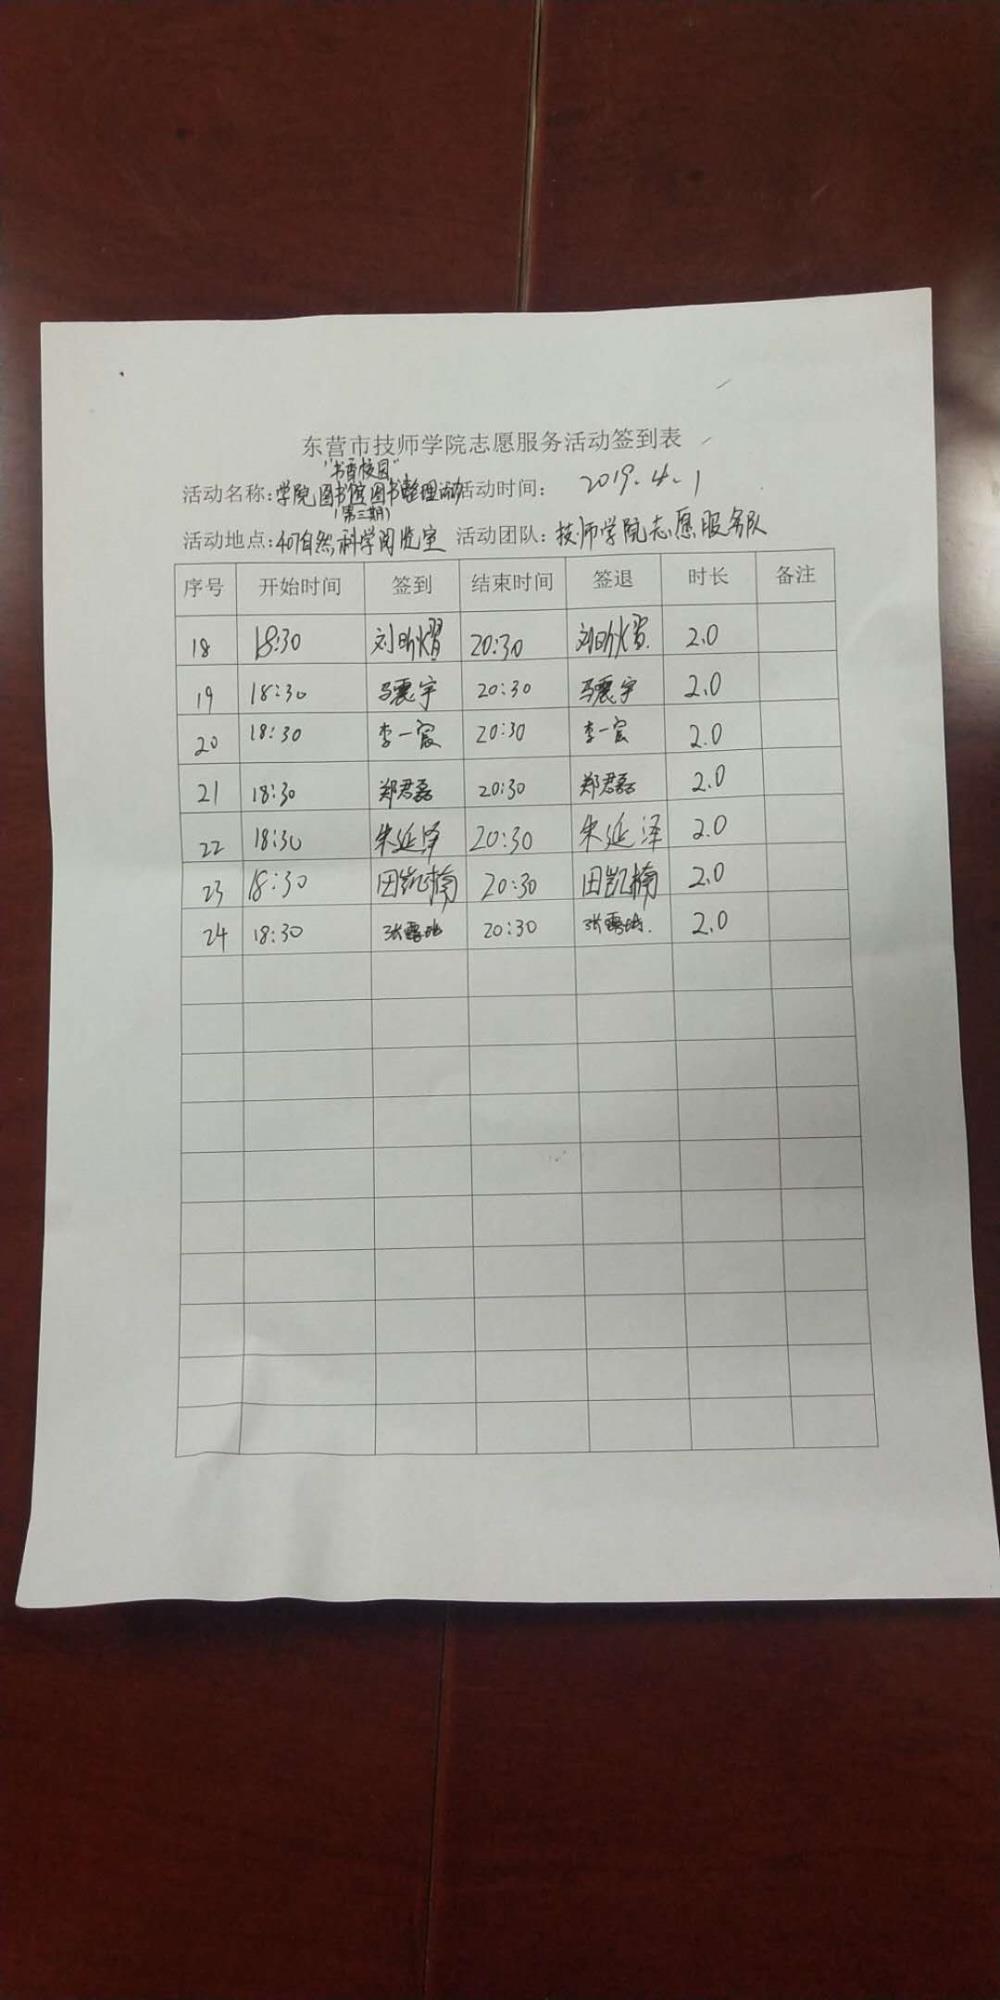 东营市技师学院志愿服务活动签到表
"书香校园"
活动名称:学院图书馆图书整理活动 活动时间: 2019.4.1
(第三期)
活动地点:407自然科学阅览室 活动团队:技师学院志愿服务队
序号 开始时间 签到 结束时间 签退 时长 备注
18 18:30 刘昕熠 20:30 刘昕熠 2.0
19 18:30 马震宇 20:30 马震宇 2.0
20 18:30 李一宸 20:30 李一宸 2.0
21 18:30 郑君磊 20:30 郑君磊 2.0
22 18:30 朱延泽 20:30 朱延泽 2.0
23 18:30 田凯楠 20:30 田凯楠 2.0
24 18:30 张露 20:30 张露 2.0